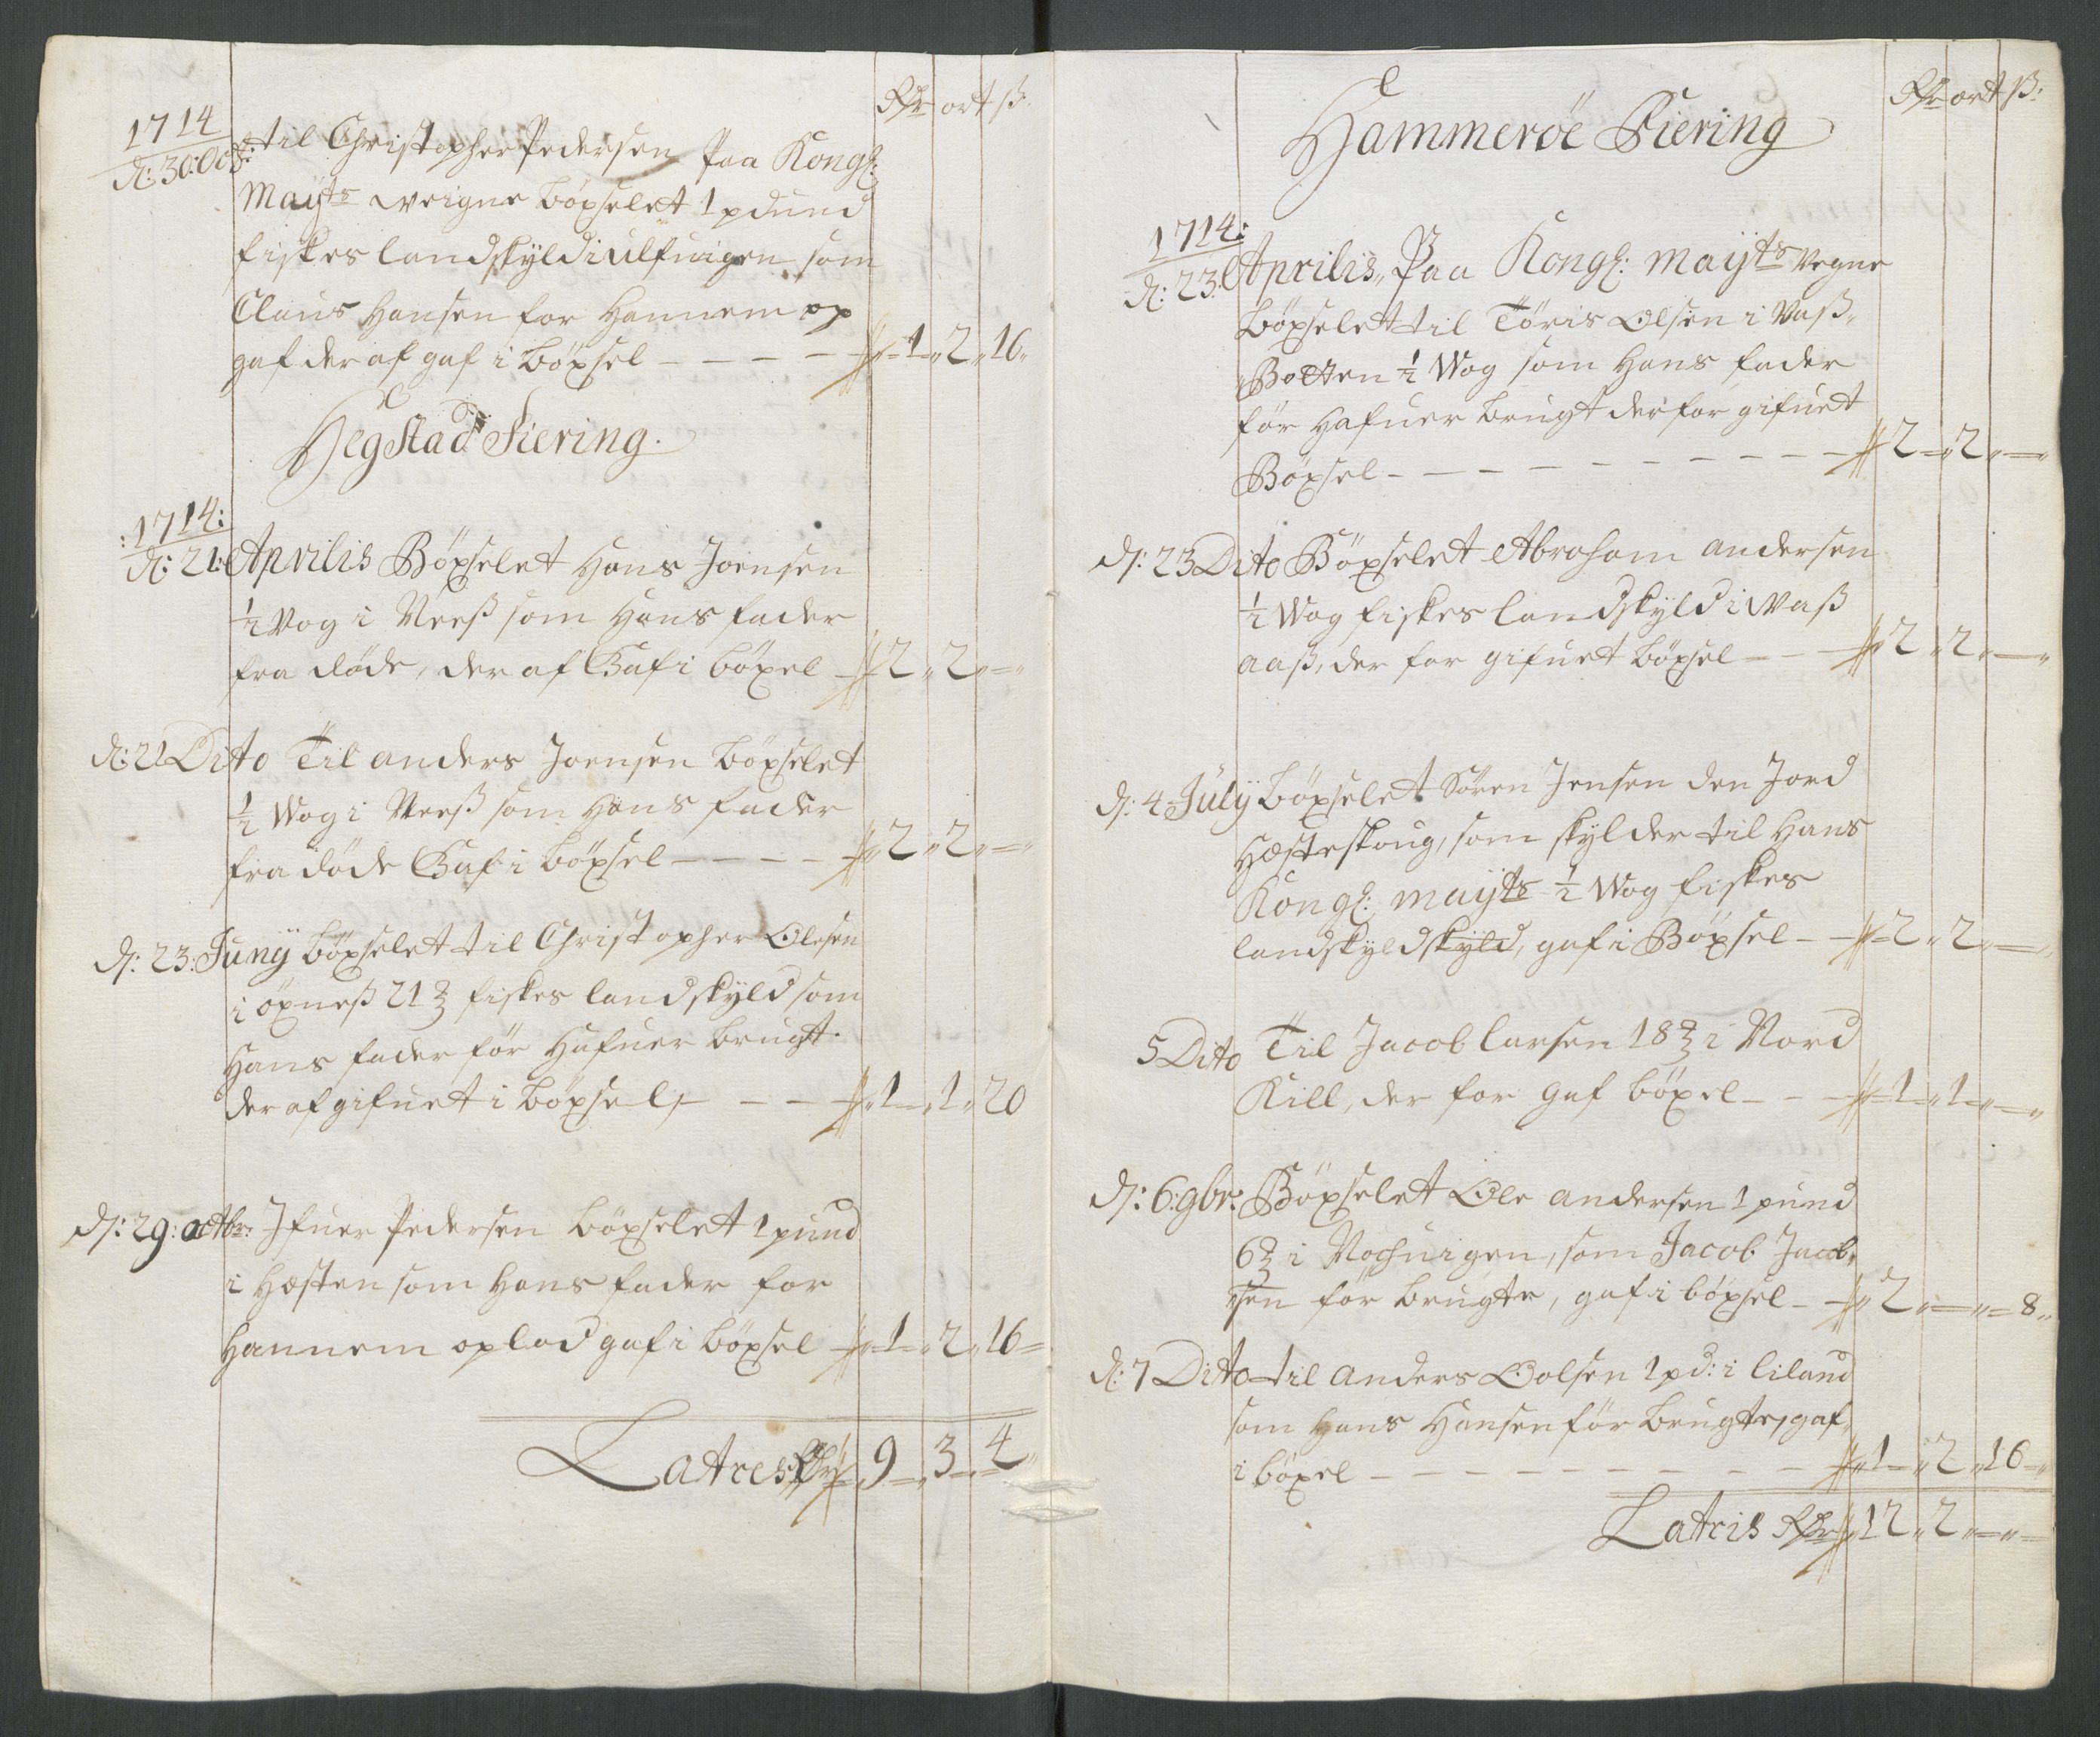 Rdr ort ß.
1714
d: 30: Oct: til Christopher Pedersen Paa Kongl:
Mayts weigne böxselet 1 pdund
fiskes landskyld i Ulfsuigen som
Claus Hansen for Hannem op
gaf der af gaf i böxsel - - - - 1 „ 2 „ 16 „
Hegstad Fiering.
:1714:
d: 21: Aprilis Böxselet Hans Joensen
½ Vog i Neeß som Hans fader
fra döde, der af Gaf i böxel - 2 „ 2 „ — „
d: 21 Dito Til Anders Joensen böxselet
½ Wog i Neeß som Hans fader
fra döde Gaf i böxsel - - - - 2 „ 2 „ — „
d: 23: Juny böxselet til Christopher Olesen
i öxneß 21 ℔ fiskes landskyld som
Hans fader för Hafuer brugt.
der af gifuet i böxsel, - - - 1 „ 1 „ 20
d: 29: octbr: Ifuer Pedersen böxselet 1 pund
i Hæsten som Hans fader for
Hannem oplod gaf i böxsel - 1 „ 2 „ 16 „
Latres Rdr 9 „ 3 „ 4 „
Rdr ort ß:
Hammeröe Fiering
1714:
d: 23: Aprilis, Paa Kongl: Mayts Vegne
böxselet til Töris Olsen i Vaß„
„Botten ½ Wog som Hans fader
för Hafuer brugt derfor gifuet
Böxsel - - - - - - - - - 2 „ 2 „ — „
d: 23 Dito Böxselet Abraham Andersen
½ Wog fiskes landskyld i Vaß
aaß, der for gifuet böxsel - - - 2 „ 2 „ — „
d: 4 July böxselet Sören Jensen den Jord
Hæsteskoug, som skylder til Hans
Kongl: Mayts ½ Wog fiskes
landskyld skyld, gaf i Böxsel - - 2 „ 2 „ — „
5 Dito Til Jacob Larsen 18 ℔ i Nord
Kill, der for Gaf böxel - - - 1 „ 1 „ — „
d: 6: 9br: Böxselet Ole Andersen 1 pund
6 ℔ i Norsuigen, som Jacob Jacob„
„sen för brugte, gaf i böxsel - 2 „ — „ 8 „
d: 7 Dito til Anders Oolsen 1 pd: i Liland
som Hans Hansen för brugte, gaf
i böxel - - - - - - - - - 1 „ 2 „ 16 „
Latris Rdr 12 „ 2 „ — „